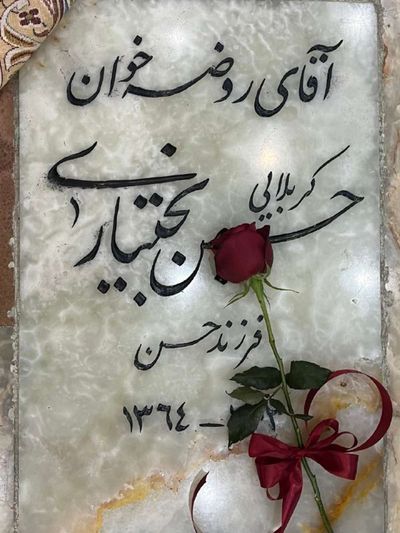 آقای روضه خوان
کربلایی
حسین بختیاری
فرزند حسن
۱۳۶۴